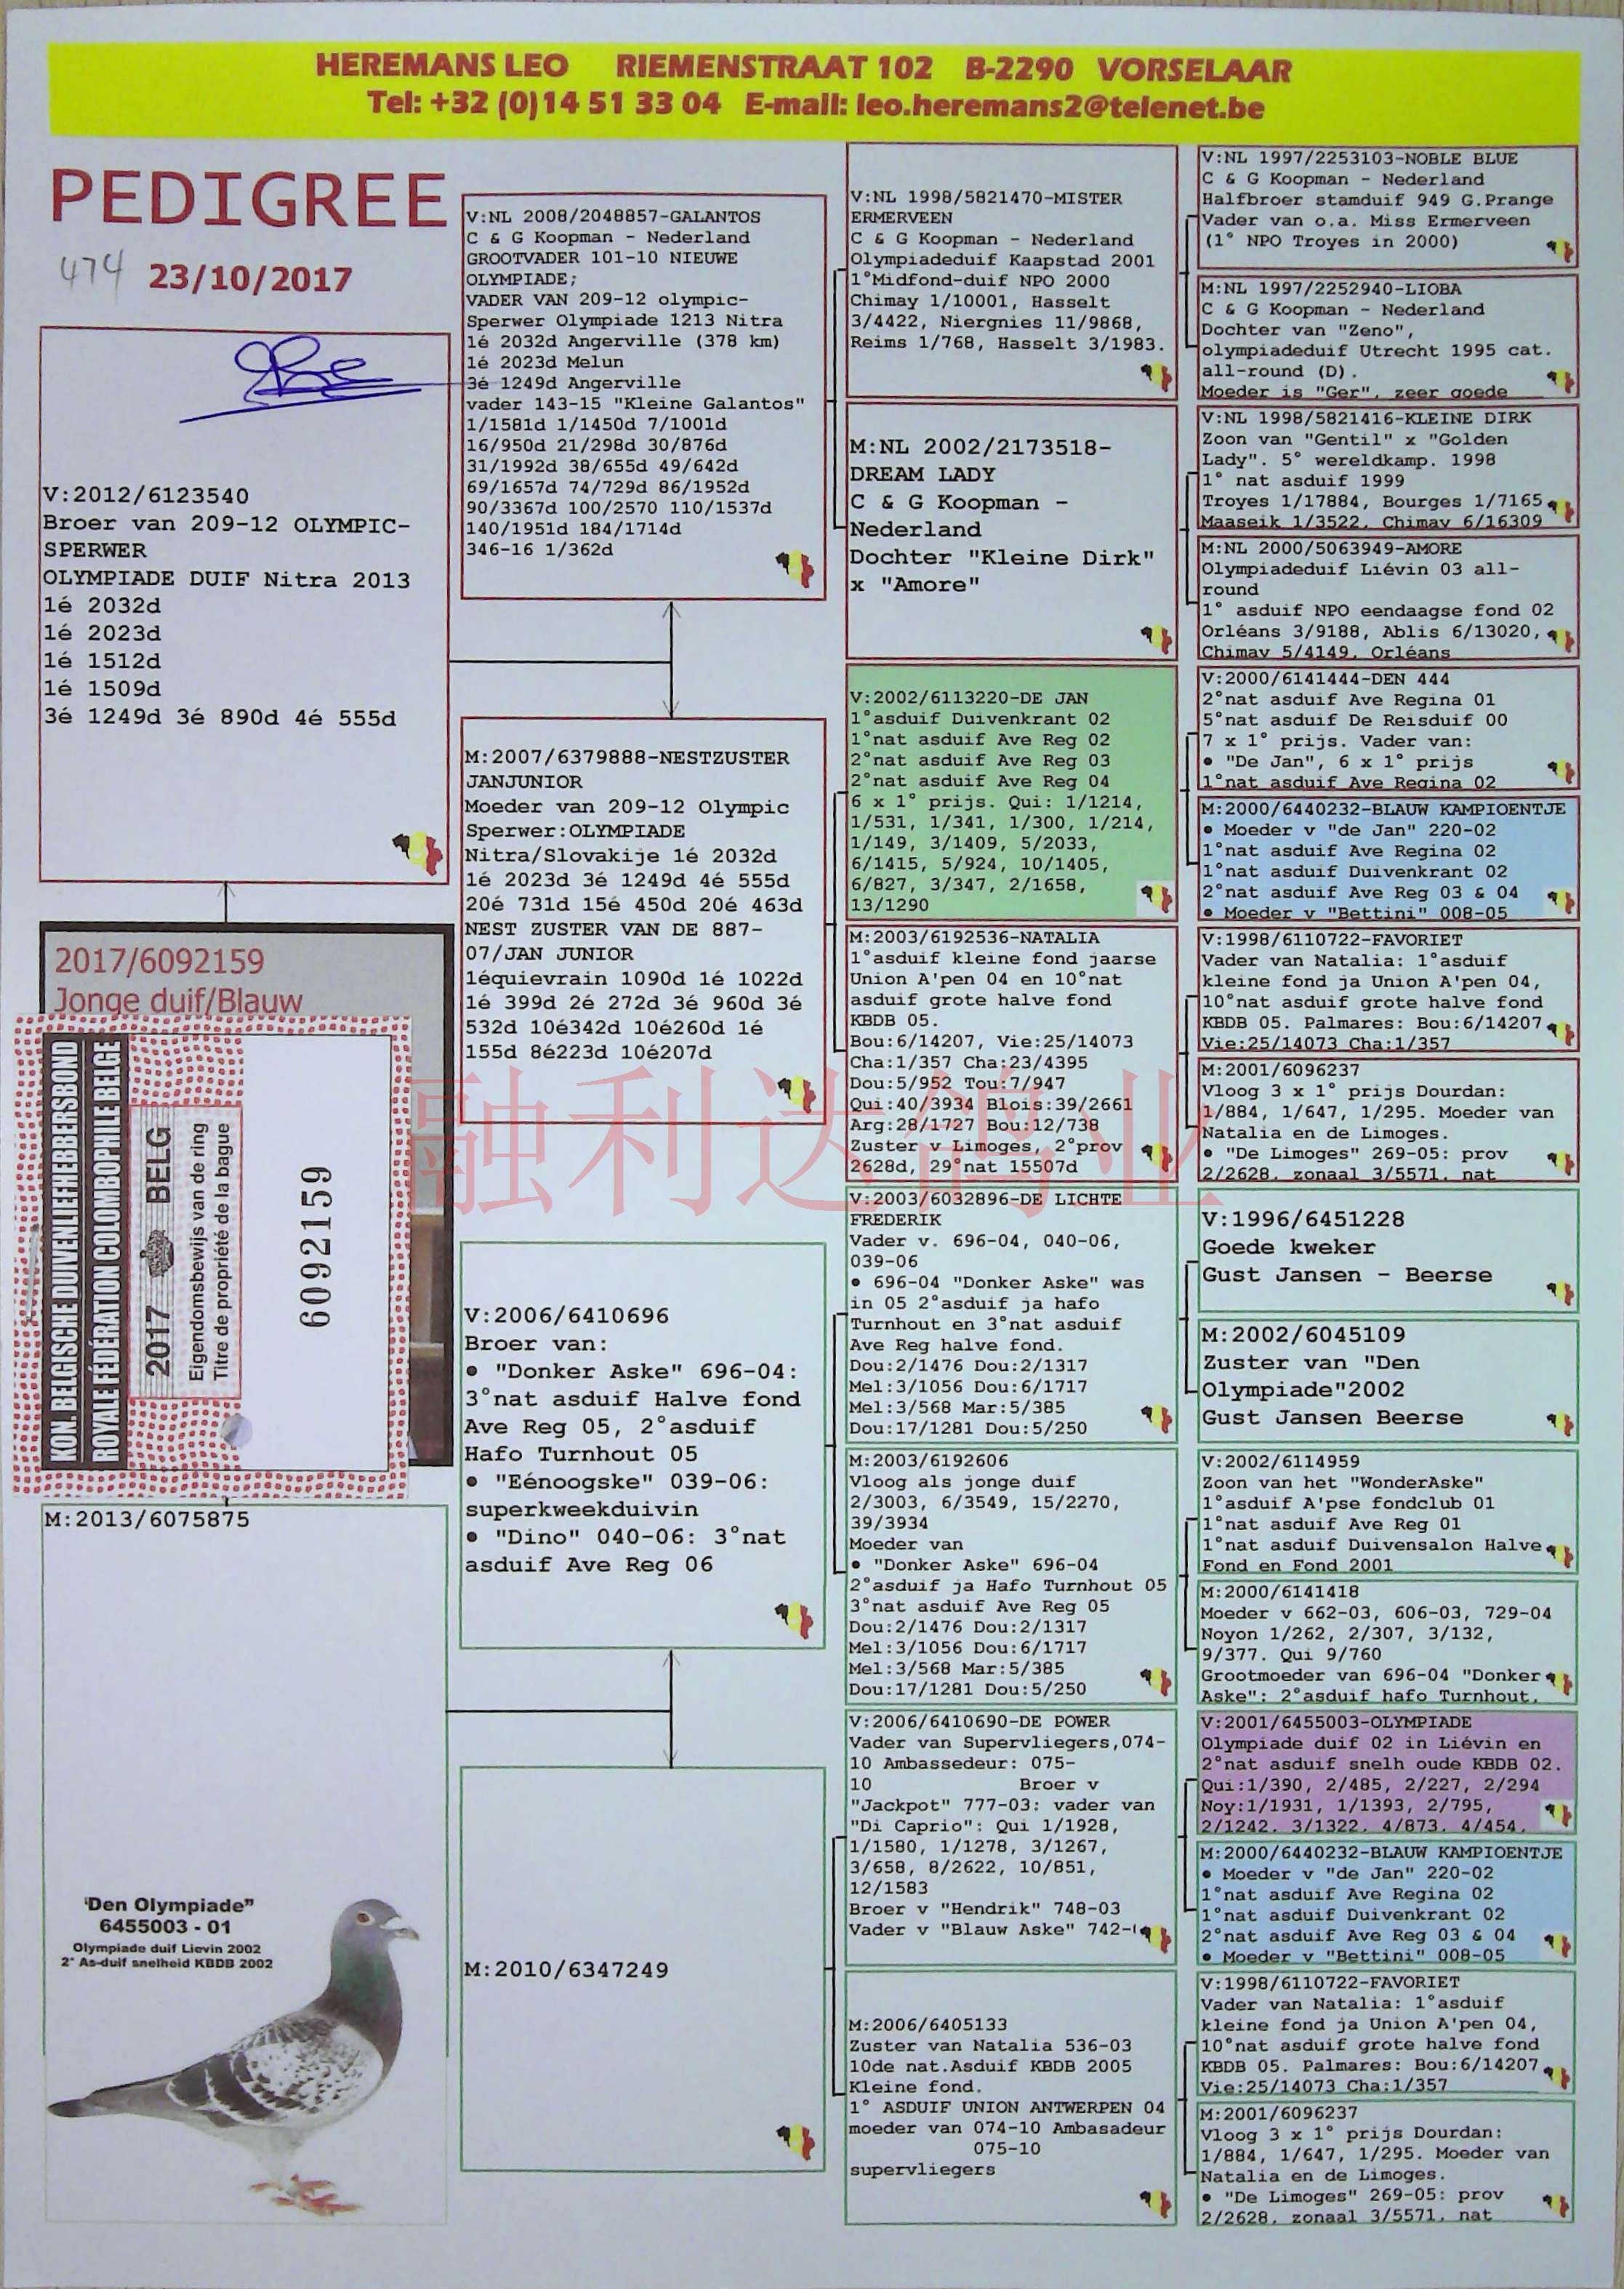 HEREMANS LEO RIEMENSTRAAT 102 B-2290 VORSELAAR
Tel: +32 (0)14 51 33 04 E-mail: leo.heremans2@telenet.be
PEDIGREE
474 23/10/2017
V:2012/6123540
Broer van 209-12 OLYMPIC-
SPERWER
OLYMPIADE DUIF Nitra 2013
1é 2032d
1é 2023d
1é 1512d
1é 1509d
3é 1249d 3é 890d 4é 555d
2017/6092159
Jonge duif/Blauw
KON. BELGISCHE DUIVENLIEFHEBBERSBOND
ROYALE FÉDÉRATION COLOMBOPHILE BELGE
2017 BELG
Eigendomsbewijs van de ring
Titre de propriété de la bague
6092159
M:2013/6075875
"Den Olympiade"
6455003 - 01
Olympiade duif Lievin 2002
2° As-duif snelheid KBDB 2002
V:NL 2008/2048857-GALANTOS
C & G Koopman - Nederland
GROOTVADER 101-10 NIEUWE
OLYMPIADE;
VADER VAN 209-12 olympic-
Sperwer Olympiade 1213 Nitra
1é 2032d Angerville (378 km)
1é 2023d Melun
3é 1249d Angerville
vader 143-15 "Kleine Galantos"
1/1581d 1/1450d 7/1001d
16/950d 21/298d 30/876d
31/1992d 38/655d 49/642d
69/1657d 74/729d 86/1952d
90/3367d 100/2570 110/1537d
140/1951d 184/1714d
346-16 1/362d
M:2007/6379888-NESTZUSTER
JANJUNIOR
Moeder van 209-12 Olympic
Sperwer:OLYMPIADE
Nitra/Slovakije 1é 2032d
1é 2023d 3é 1249d 4é 555d
20é 731d 15é 450d 20é 463d
NEST ZUSTER VAN DE 887-
07/JAN JUNIOR
1équievrain 1090d 1é 1022d
1é 399d 2é 272d 3é 960d 3é
532d 10é342d 10é260d 1é
155d 8é223d 10é207d
V:2006/6410696
Broer van:
• "Donker Aske" 696-04:
3°nat asduif Halve fond
Ave Reg 05, 2°asduif
Hafo Turnhout 05
• "Eénoogske" 039-06:
superkweekduivin
• "Dino" 040-06: 3°nat
asduif Ave Reg 06
M:2010/6347249
V:NL 1998/5821470-MISTER
ERMERVEEN
C & G Koopman - Nederland
Olympiadeduif Kaapstad 2001
1°Midfond-duif NPO 2000
Chimay 1/10001, Hasselt
3/4422, Niergnies 11/9868,
Reims 1/768, Hasselt 3/1983.
M:NL 2002/2173518-
DREAM LADY
C & G Koopman -
Nederland
Dochter "Kleine Dirk"
x "Amore"
V:2002/6113220-DE JAN
1°asduif Duivenkrant 02
1°nat asduif Ave Reg 02
2°nat asduif Ave Reg 03
2°nat asduif Ave Reg 04
6 x 1° prijs. Qui: 1/1214,
1/531, 1/341, 1/300, 1/214,
1/149, 3/1409, 5/2033,
6/1415, 5/924, 10/1405,
6/827, 3/347, 2/1658,
13/1290
M:2003/6192536-NATALIA
1°asduif kleine fond jaarse
Union A'pen 04 en 10°nat
asduif grote halve fond
KBDB 05.
Bou:6/14207, Vie:25/14073
Cha:1/357 Cha:23/4395
Dou:5/952 Tou:7/947
Qui:40/3934 Blois:39/2661
Arg:28/1727 Bou:12/738
Zuster v Limoges, 2°prov
2628d, 29°nat 15507d
V:2003/6032896-DE LICHTE
FREDERIK
Vader v. 696-04, 040-06,
039-06
• 696-04 "Donker Aske" was
in 05 2°asduif ja hafo
Turnhout en 3°nat asduif
Ave Reg halve fond.
Dou:2/1476 Dou:2/1317
Mel:3/1056 Dou:6/1717
Mel:3/568 Mar:5/385
Dou:17/1281 Dou:5/250
M:2003/6192606
Vloog als jonge duif
2/3003, 6/3549, 15/2270,
39/3934
Moeder van
• "Donker Aske" 696-04
2°asduif ja Hafo Turnhout 05
3°nat asduif Ave Reg 05
Dou:2/1476 Dou:2/1317
Mel:3/1056 Dou:6/1717
Mel:3/568 Mar:5/385
Dou:17/1281 Dou:5/250
V:2006/6410690-DE POWER
Vader van Supervliegers,074-
10 Ambassedeur: 075-
10 Broer v
"Jackpot" 777-03: vader van
"Di Caprio": Qui 1/1928,
1/1580, 1/1278, 3/1267,
3/658, 8/2622, 10/851,
12/1583
Broer v "Hendrik" 748-03
Vader v "Blauw Aske" 742-
M:2006/6405133
Zuster van Natalia 536-03
10de nat.Asduif KBDB 2005
Kleine fond.
1° ASDUIF UNION ANTWERPEN 04
moeder van 074-10 Ambasadeur
075-10
supervliegers
V:NL 1997/2253103-NOBLE BLUE
C & G Koopman - Nederland
Halfbroer stamduif 949 G.Prange
Vader van o.a. Miss Ermerveen
(1° NPO Troyes in 2000)
M:NL 1997/2252940-LIOBA
C & G Koopman - Nederland
Dochter van "Zeno",
olympiadeduif Utrecht 1995 cat.
all-round (D).
Moeder is "Ger", zeer goede
V:NL 1998/5821416-KLEINE DIRK
Zoon van "Gentil" x "Golden
Lady". 5° wereldkamp. 1998
1° nat asduif 1999
Troyes 1/17884, Bourges 1/7165
Maaseik 1/3522, Chimay 6/16309
M:NL 2000/5063949-AMORE
Olympiadeduif Liévin 03 all-
round
1° asduif NPO eendaagse fond 02
Orléans 3/9188, Ablis 6/13020,
Chimay 5/4149, Orléans
V:2000/6141444-DEN 444
2°nat asduif Ave Regina 01
5°nat asduif De Reisduif 00
7 x 1° prijs. Vader van:
• "De Jan", 6 x 1° prijs
1°nat asduif Ave Regina 02
M:2000/6440232-BLAUW KAMPIOENTJE
• Moeder v "de Jan" 220-02
1°nat asduif Ave Regina 02
1°nat asduif Duivenkrant 02
2°nat asduif Ave Reg 03 & 04
• Moeder v "Bettini" 008-05
V:1998/6110722-FAVORIET
Vader van Natalia: 1°asduif
kleine fond ja Union A'pen 04,
10°nat asduif grote halve fond
KBDB 05. Palmares: Bou:6/14207
Vie:25/14073 Cha:1/357
M:2001/6096237
Vloog 3 x 1° prijs Dourdan:
1/884, 1/647, 1/295. Moeder van
Natalia en de Limoges.
• "De Limoges" 269-05: prov
2/2628, zonaal 3/5571, nat
V:1996/6451228
Goede kweker
Gust Jansen - Beerse
M:2002/6045109
Zuster van "Den
Olympiade"2002
Gust Jansen Beerse
V:2002/6114959
Zoon van het "WonderAske"
1°asduif A'pse fondclub 01
1°nat asduif Ave Reg 01
1°nat asduif Duivensalon Halve
Fond en Fond 2001
M:2000/6141418
Moeder v 662-03, 606-03, 729-04
Noyon 1/262, 2/307, 3/132,
9/377. Qui 9/760
Grootmoeder van 696-04 "Donker
Aske": 2°asduif hafo Turnhout,
V:2001/6455003-OLYMPIADE
Olympiade duif 02 in Liévin en
2°nat asduif snelh oude KBDB 02.
Qui:1/390, 2/485, 2/227, 2/294
Noy:1/1931, 1/1393, 2/795,
2/1242, 3/1322, 4/873, 4/454,
M:2000/6440232-BLAUW KAMPIOENTJE
• Moeder v "de Jan" 220-02
1°nat asduif Ave Regina 02
1°nat asduif Duivenkrant 02
2°nat asduif Ave Reg 03 & 04
• Moeder v "Bettini" 008-05
V:1998/6110722-FAVORIET
Vader van Natalia: 1°asduif
kleine fond ja Union A'pen 04,
10°nat asduif grote halve fond
KBDB 05. Palmares: Bou:6/14207
Vie:25/14073 Cha:1/357
M:2001/6096237
Vloog 3 x 1° prijs Dourdan:
1/884, 1/647, 1/295. Moeder van
Natalia en de Limoges.
• "De Limoges" 269-05: prov
2/2628, zonaal 3/5571, nat
融利达鸽业